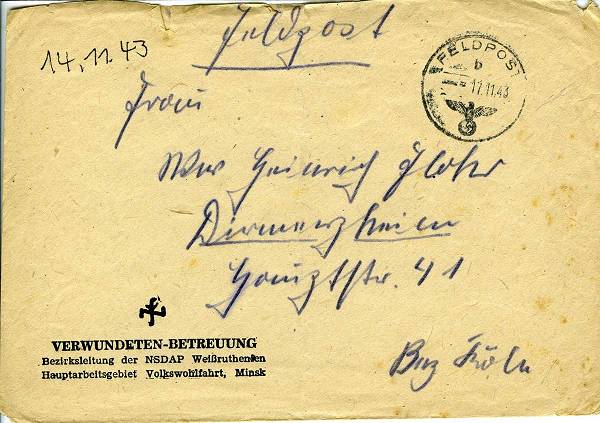 14.11.43
Feldpost
FELDPOST
b
17.11.43
Frau
Wwe Heinrich Flohr
Dirmerzheim
Hauptstr. 41
Bez Köln
VERWUNDETEN-BETREUUNG
Bezirksleitung der NSDAP Weißruthenien
Hauptarbeitsgebiet Volkswohlfahrt, Minsk